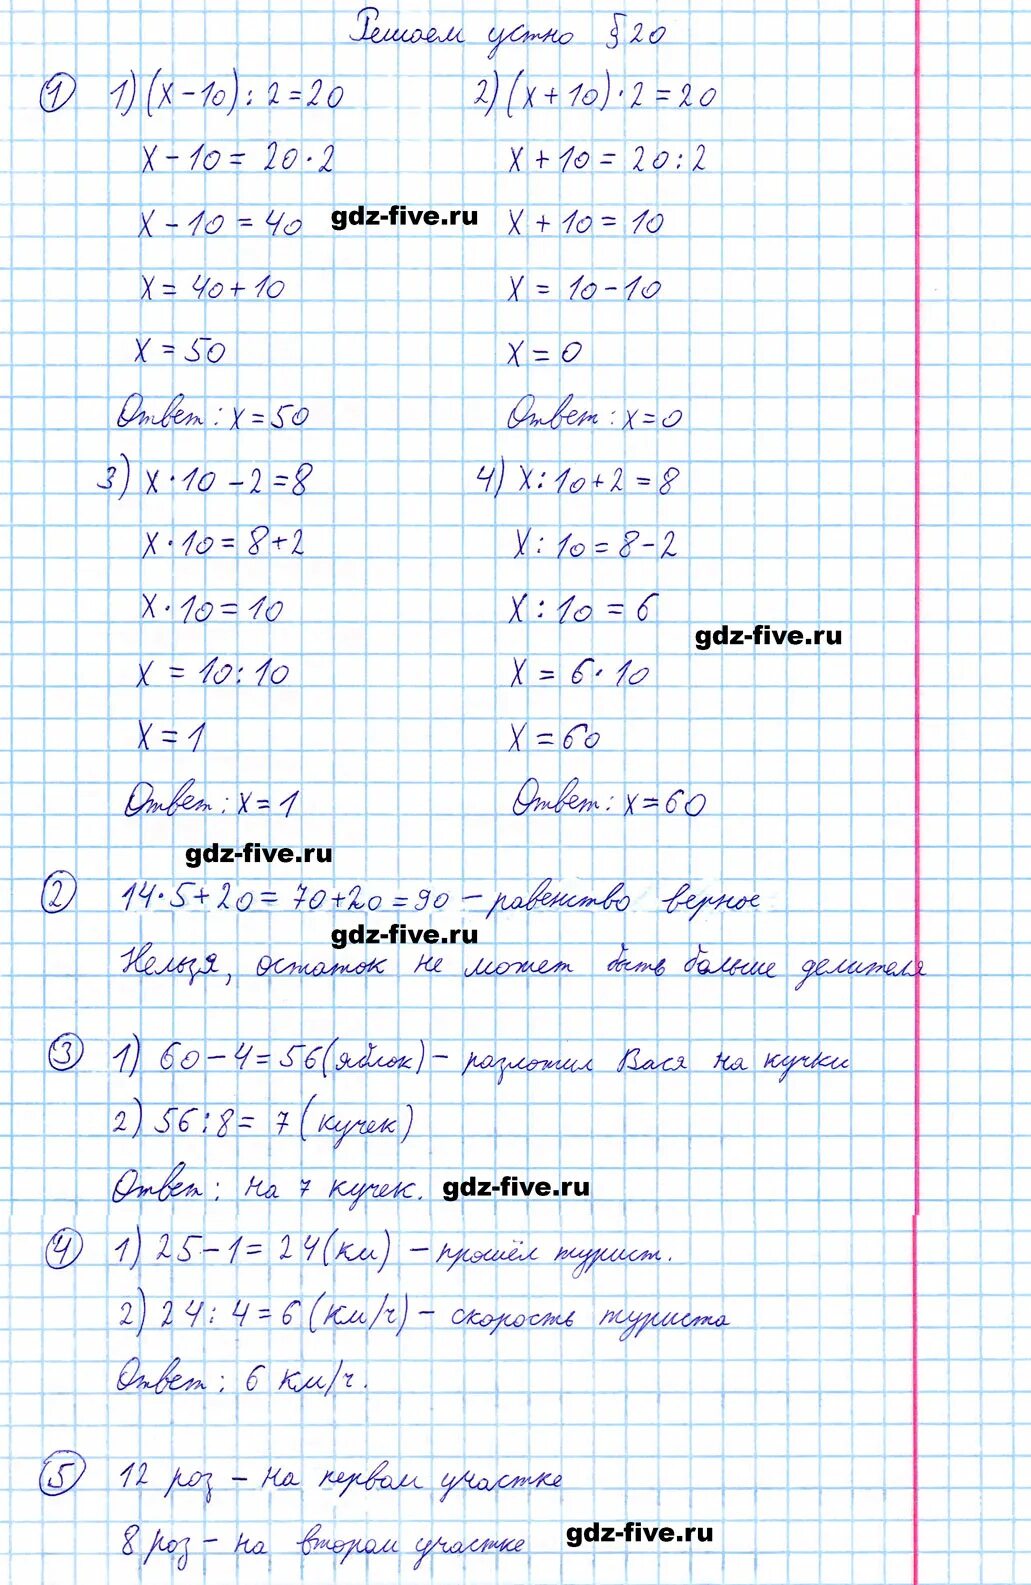 Решаем устно §20
① 1) (x-10) : 2 = 20 2) (x+10)·2 = 20
x-10 = 20·2 x+10 = 20:2
x-10 = 40 gdz-five.ru x+10 = 10
x = 40+10 x = 10-10
x = 50 x = 0
Ответ: x=50 Ответ: x=0
3) x·10-2=8 4) x:10+2=8
x·10=8+2 x:10=8-2
x·10=10 x:10=6
gdz-five.ru
x = 10:10 x = 6·10
x=1 x=60
Ответ: x=1 Ответ: x=60
gdz-five.ru
② 14·5+20=70+20=90 - равенство верное
gdz-five.ru
Нельзя, остаток не может быть больше делителя
③ 1) 60-4=56 (яблок) - разложил Вася на кучки
2) 56:8= 7 (кучек)
Ответ: на 7 кучек. gdz-five.ru
④ 1) 25-1=24 (км) - прошёл турист.
2) 24:4=6 (км/ч) - скорость туриста
Ответ: 6 км/ч.
⑤ 12 роз - на первом участке
8 роз - на втором участке gdz-five.ru